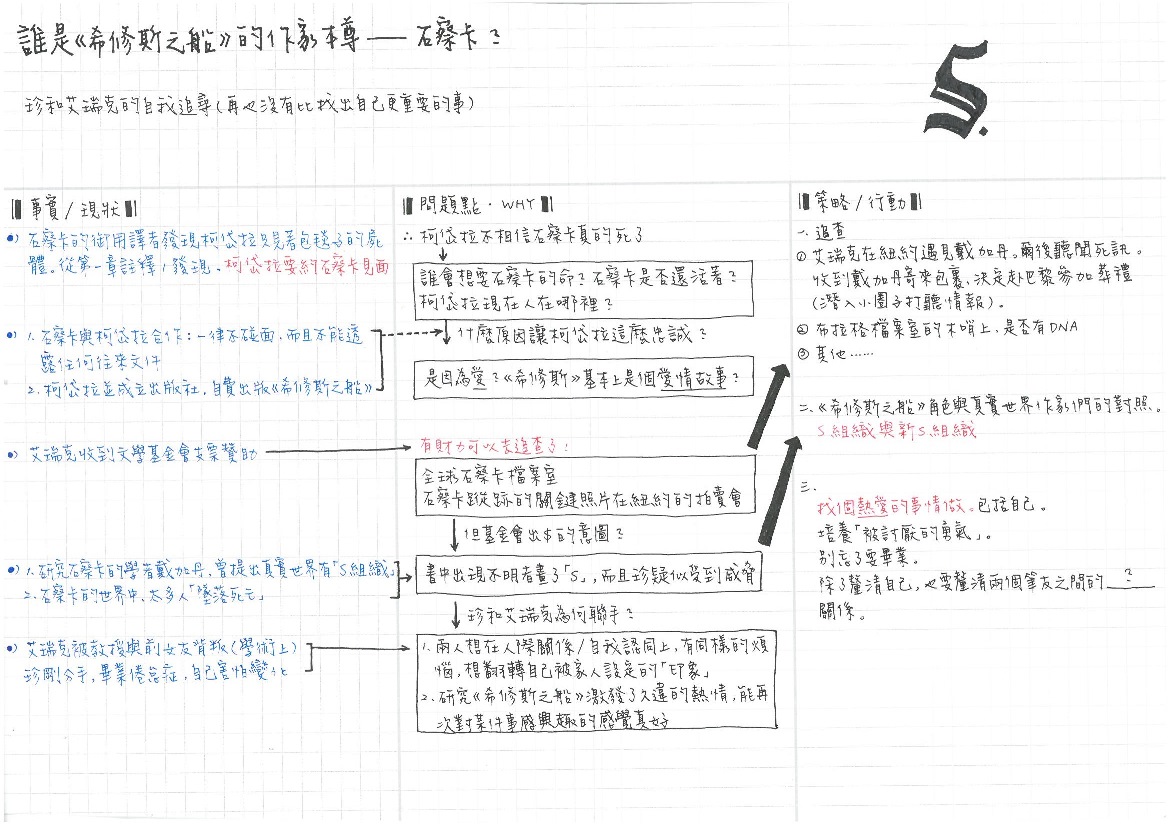 誰是《希修斯之船》的作家本尊——石察卡?
珍和艾瑞克的自我追尋(再也沒有比找出自己更重要的事)
S.
事實/現狀
石察卡的御用譯者發現柯岱拉只見著包毯子的屍
體。從第一章註釋1發現,柯岱拉要約石察卡見面
1.石察卡與柯岱拉合作:一律不碰面,而且不能透
露任何往來文件
2.柯岱拉並成立出版社,自費出版《希修斯之船》
艾瑞克收到文學基金會支票贊助
1.研究石察卡的學者戴加丹,曾提出真實世界有「S組織」
2.石察卡的世界中,太多人「墜落死亡」
艾瑞克被教授與前女友背叛(學術上)
珍剛分手,畢業倦怠症,自己害怕變化
問題點·WHY
∴柯岱拉不相信石察卡真的死了
誰會想要石察卡的命?石察卡是否還活著?
柯岱拉現在人在哪裡?
什麼原因讓柯岱拉這麼忠誠?
是因為愛?《希修斯》基本上是個愛情故事?
有財力可以去追查了!
全球石察卡檔案室
石察卡蹤跡的關鍵照片在紐約的拍賣會
但基金會出$的意圖?
書中出現不明者畫了「S」,而且珍疑似受到威脅
珍和艾瑞克為何聯手?
1.兩人想在人際關係/自我認同上,有同樣的煩
惱,想翻轉自己被家人設定的「印象」
2.研究《希修斯之船》激發了久違的熱情,能再
次對某件事感興趣的感覺真好
策略/行動
一.追查
①艾瑞克在紐約遇見戴加丹。爾後聽聞死訊。
收到戴加丹寄來包裹,決定赴巴黎參加葬禮
(潛入小圈子打聽情報)。
②布拉格檔案室的木哨上,是否有DNA
③其他……
二.《希修斯之船》角色與真實世界作家們的對照。
S組織與新S組織
三.
找個熱愛的事情做。包括自己。
培養「被討厭的勇氣」。
別忘了要畢業。
除了釐清自己,也要釐清兩個筆友之間的__?__
關係。